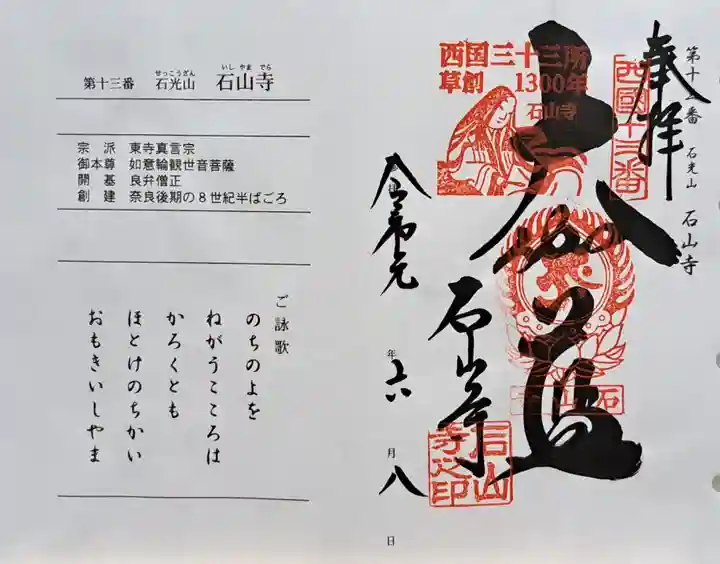 第十三番 石光山 石山寺
せっこうざん いしやまでら
宗派 東寺真言宗
御本尊 如意輪観世音菩薩
開基 良弁僧正
創建 奈良後期の8世紀半ばごろ
ご詠歌
のちのよを
ねがうこころは
かろくとも
ほとけのちかい
おもきいしやま
奉拝
第十三番 石光山 石山寺
西國十三番
西国三十三所
草創 1300年
石山寺
石山寺
石山寺
石山寺之印
令和元年六月八日